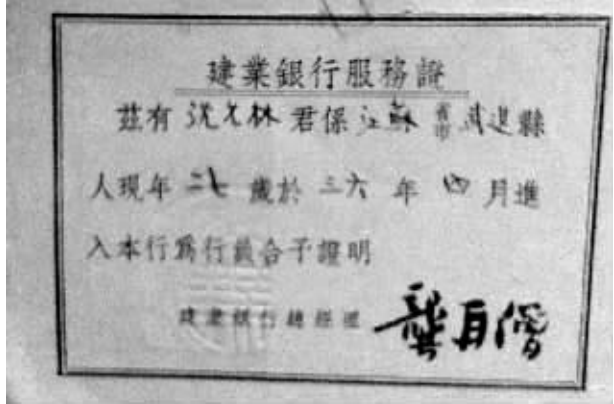 建業銀行服務證
茲有 沈文林 君係 江蘇 省市 武進縣
人現年 二七 歲於 三六 年 四 月進
入本行爲行員合予證明
建業銀行總經理 龔自僧